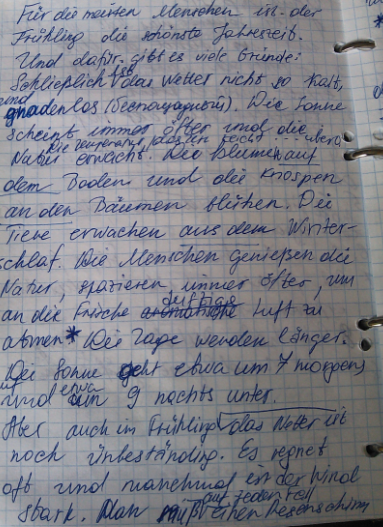 Für die meisten Menschen ist der
Frühling die schönste Jahreszeit.
Und dafür gibt es viele Gründe:
Schließlich ist das Wetter nicht so kalt,
und
gnadenlos (беспощадный). Die Sonne
scheint immer öfter und die
Die Temperatur
Natur erwacht. Die Blumen auf
dem Boden und die Knospen
an den Bäumen blühen. Die
Tiere erwachen aus dem Winter-
schlaf. Die Menschen genießen die
Natur, spazieren immer öfter, um
an die Frische duftige Luft zu
atmen * Die Tage werden länger.
Die Sonne geht etwa um 7 morgens
und etwa um 9 nachts unter.
Aber auch im Frühling das Wetter ist
noch Unbeständing. Es regnet
oft und manchmal ist der Wind
auf jeden Fall
stark. Man muß einen Regenschirm